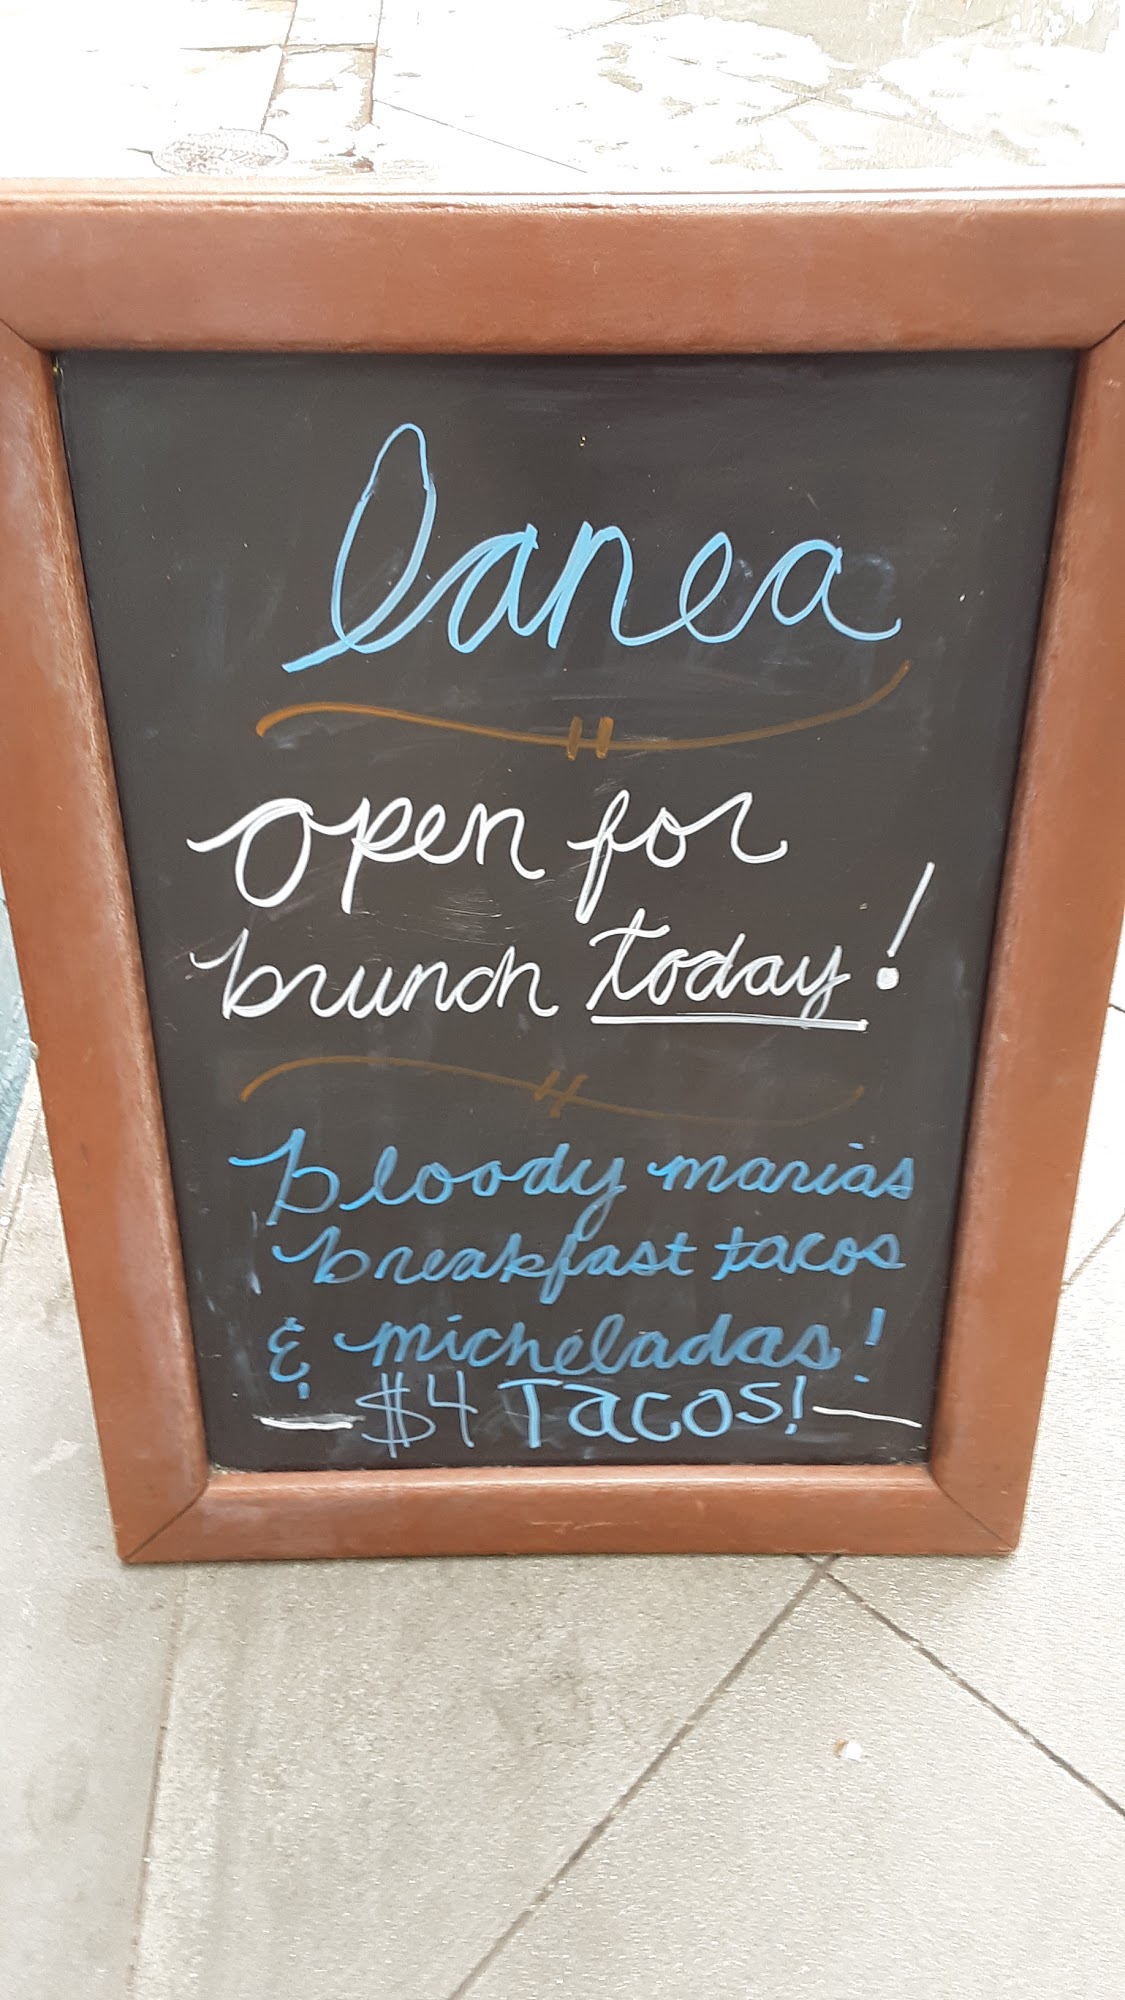 lanea
open for
brunch today!
bloody marias
breakfast tacos
& micheladas!
$4 Tacos!